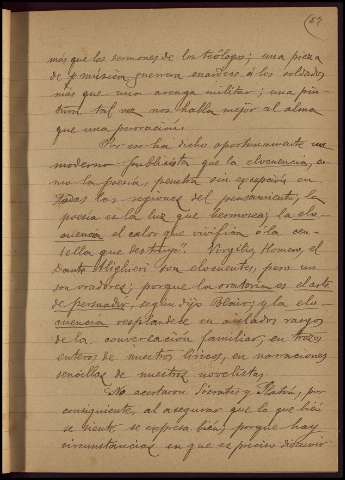 67
más que los sermones de los teólogos; una pieza
de música guerrera enardece á los soldados
más que una arenga militar; una pin-
tura tal vez nos habla mejor al alma
que una peroración.
Por eso ha dicho oportunamente un
moderno publicista que la elocuencia, co-
mo la poesía, penetra sin excepción en
todas las regiones del pensamiento; la
poesía es la luz que hermosea; la elo-
cuencia el calor que vivifica ó la cen-
tella que destruye". Virgilio, Homero, el
Dante Alighieri son elocuentes, pero no
son oradores; porque la oratoria es el arte
de persuadir, según dijo Blair; y la elo-
cuencia resplandece en aislados rasgos
de la conversación familiar, en trozos
enteros de nuestros líricos, en narraciones
sencillas de nuestros novelistas.
No acertaron Sócrates y Platón, por
consiguiente, al asegurar que lo que bien
se siente se expresa bien; porque hay
circunstancias en que es preciso discurrir